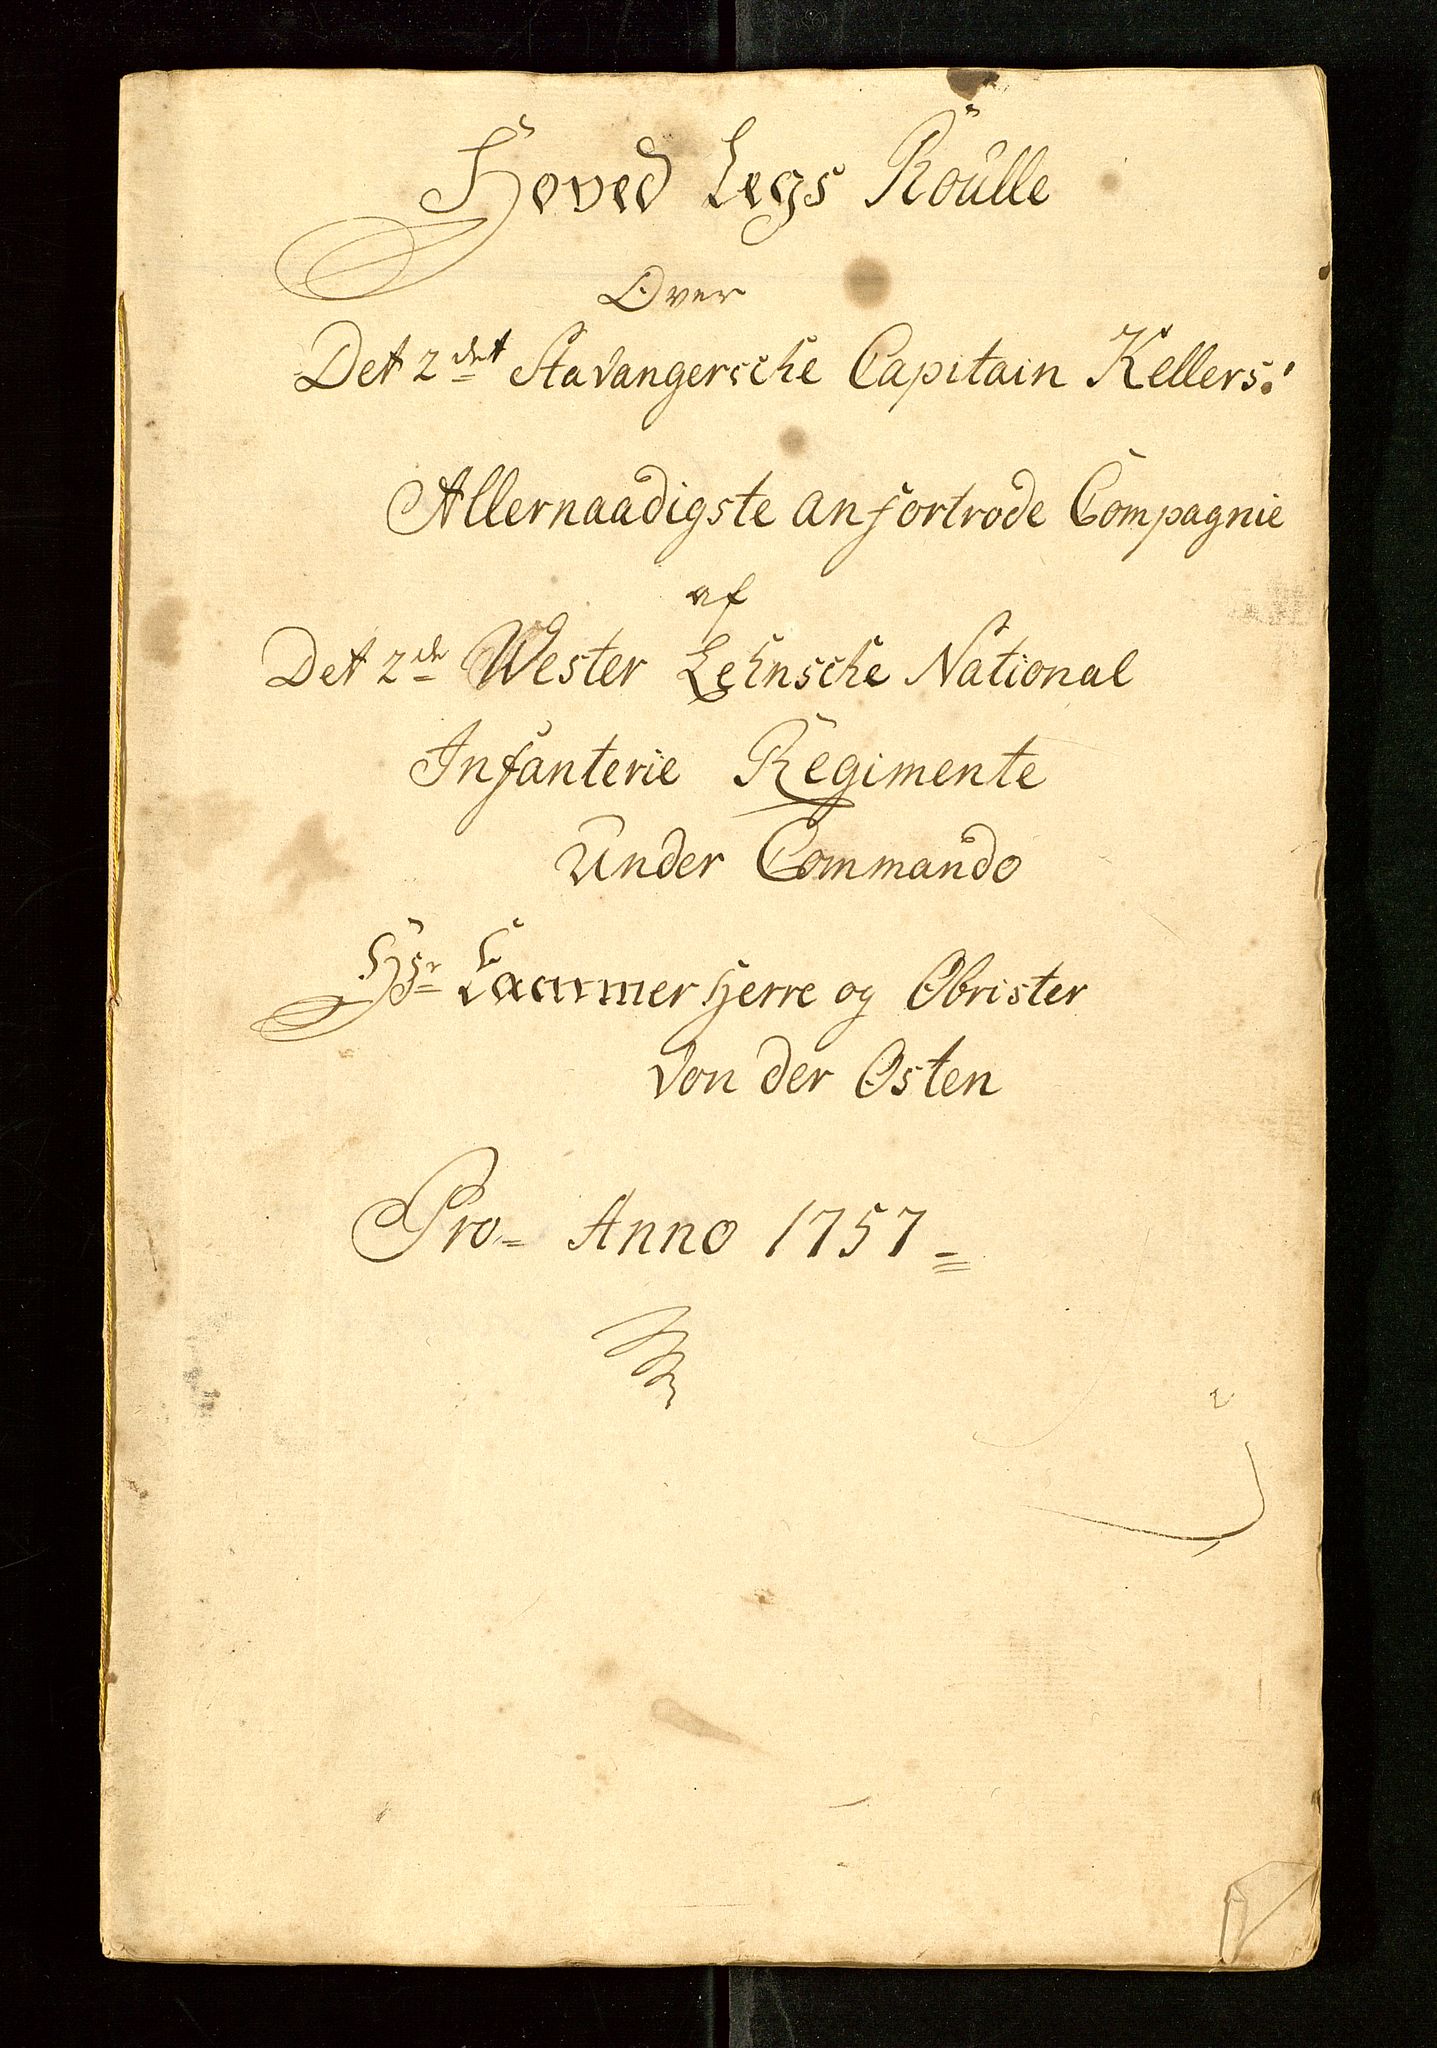 Hoved Legs Roulle
Over
Det 2det Stavangersche Capitain Kellers:
Allernaadigste anfortrode Compagnie
af
Det 2de Wester Lehnsche National
Infanterie Regimente
Under Commando
Hr Cammer Herre og Obrister
von der Osten
Pro= Anno 1757=